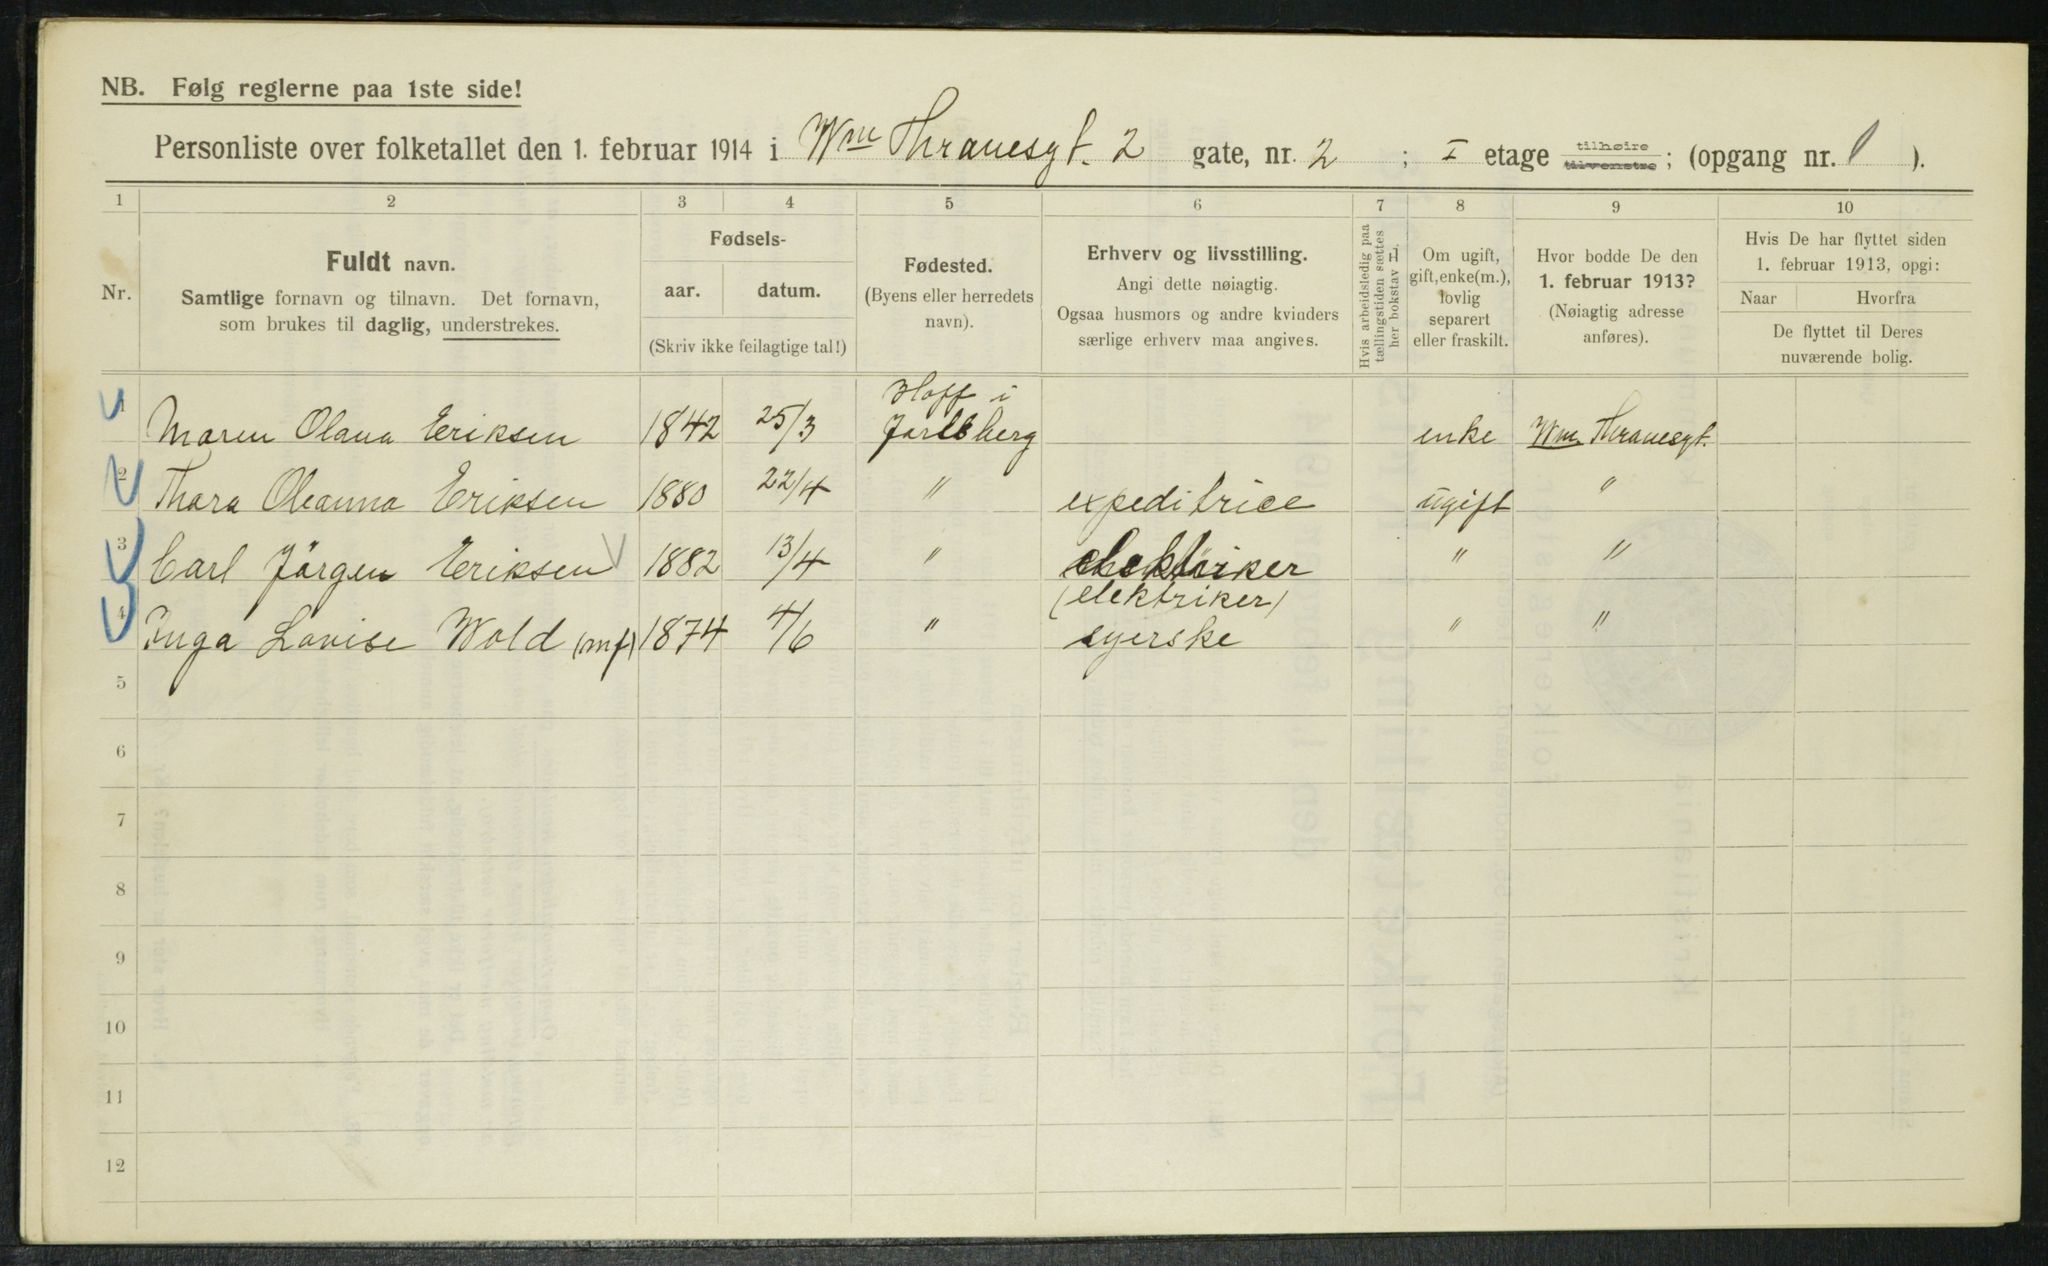 NB. Følg reglerne paa 1ste side!
Personliste over folketallet den 1. februar 1914 i Wm Thranesgt. 2 gate, nr. 2 ; I etage tilhøire tilvenstre ; (opgang nr. ).
1 2 3 4 5 6 7 8 9 10
Nr.
Fuldt navn.
Samtlige fornavn og tilnavn. Det fornavn,
som brukes til daglig, understrekes.
Fødsels-
aar. datum.
(Skriv ikke feilagtige tal!)
Fødested.
(Byens eller herredets
navn).
Erhverv og livsstilling.
Angi dette nøiagtig.
Ogsaa husmors og andre kvinders
særlige erhverv maa angives.
Hvis arbeidsledig paa
tællingstiden sættes
her bokstav L.
Om ugift,
gift, enke(m.),
lovlig
separert
eller fraskilt.
Hvor bodde De den
1. februar 1913?
(Nøiagtig adresse
anføres).
Hvis De har flyttet siden
1. februar 1913, opgi:
Naar Hvorfra
De flyttet til Deres
nuværende bolig.
1 Maren Olava Eriksen 1842 25/3 Hoff i Jarlsberg enke Wm. Thranesgt.
2 Thara Oleanna Eriksen 1880 22/4 " expeditrice ugift "
3 Carl Jörgen Eriksen 1882 13/4 " elektriker " "
(elektriker)
4 Inga Lovise Wold (mf) 1874 4/6 " syerske " "
5
6
7
8
9
10
11
12